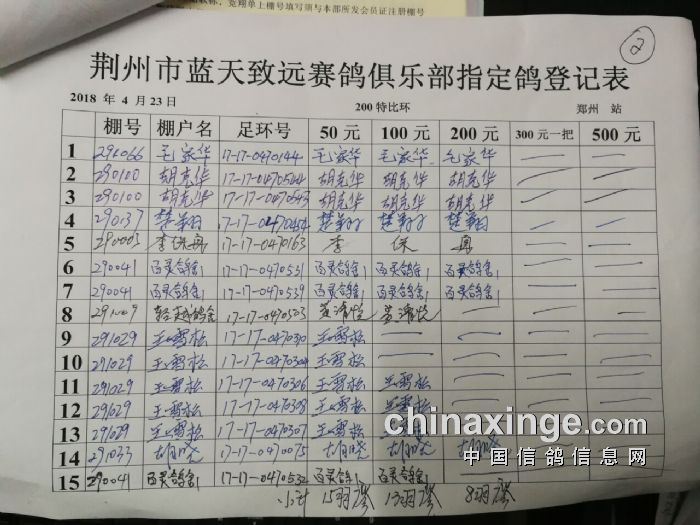 宽翔单上棚号填写须与本部所发会员证注册棚号
2
荆州市蓝天致远赛鸽俱乐部指定鸽登记表
2018 年 4 月 23 日 200特比环 郑州 站
棚号 棚户名 足环号 50 元 100 元 200 元 300 元一把 500 元
1 291066 毛家华 17-17-0470144 毛家华 毛家华 毛家华 — —
2 290100 胡克华 17-17-0470564 胡克华 胡克华 胡克华 — —
3 290100 胡克华 17-17-0470543 胡克华 胡克华 胡克华 — —
4 290137 楚翔 17-17-0470454 楚翔 楚翔 楚翔 — —
5 290005 李保 17-17-0470163 李 保 — —
6 290041 百灵鸽舍 17-17-0470531 百灵鸽舍 百灵鸽舍 百灵鸽舍 — —
7 290041 百灵鸽舍 17-17-0470539 百灵鸽舍 百灵鸽舍 百灵鸽舍 — —
8 291009 鸽舍 17-17-0470503 — — —
9 291029 王雪松 17-17-0470310 王雪松 — — — —
10 291029 王雪松 17-17-0470304 王雪松 — — — —
11 291029 王雪松 17-17-0470306 王雪松 王雪松 — — —
12 291029 王雪松 17-17-0470308 王雪松 王雪松 — — —
13 291029 王雪松 17-17-0470301 王雪松 王雪松
14 291033 胡晓 17-17-0470075 胡晓 胡晓 胡晓
15 290041 百灵鸽舍 17-17-0470532 百灵鸽舍 百灵鸽舍
小计 15羽 13羽 8羽
chinaxinge.com
中国信鸽信息网